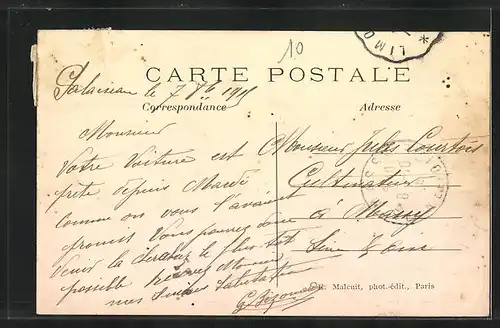 10
LIMO
CARTE POSTALE
Correspondance
Adresse
Palaiseau le 7
Monsieur
Votre Voiture est
prête depuis Mardi
comme on vous l'avait
promis Vous pouvez donc
Venir la le plus tôt
possible Monsieur
mes Salutations
Monsieur Jules Courtois
Cultivateur
à Massy
Seine & Oise
E. Malcuit, phot.-édit., Paris